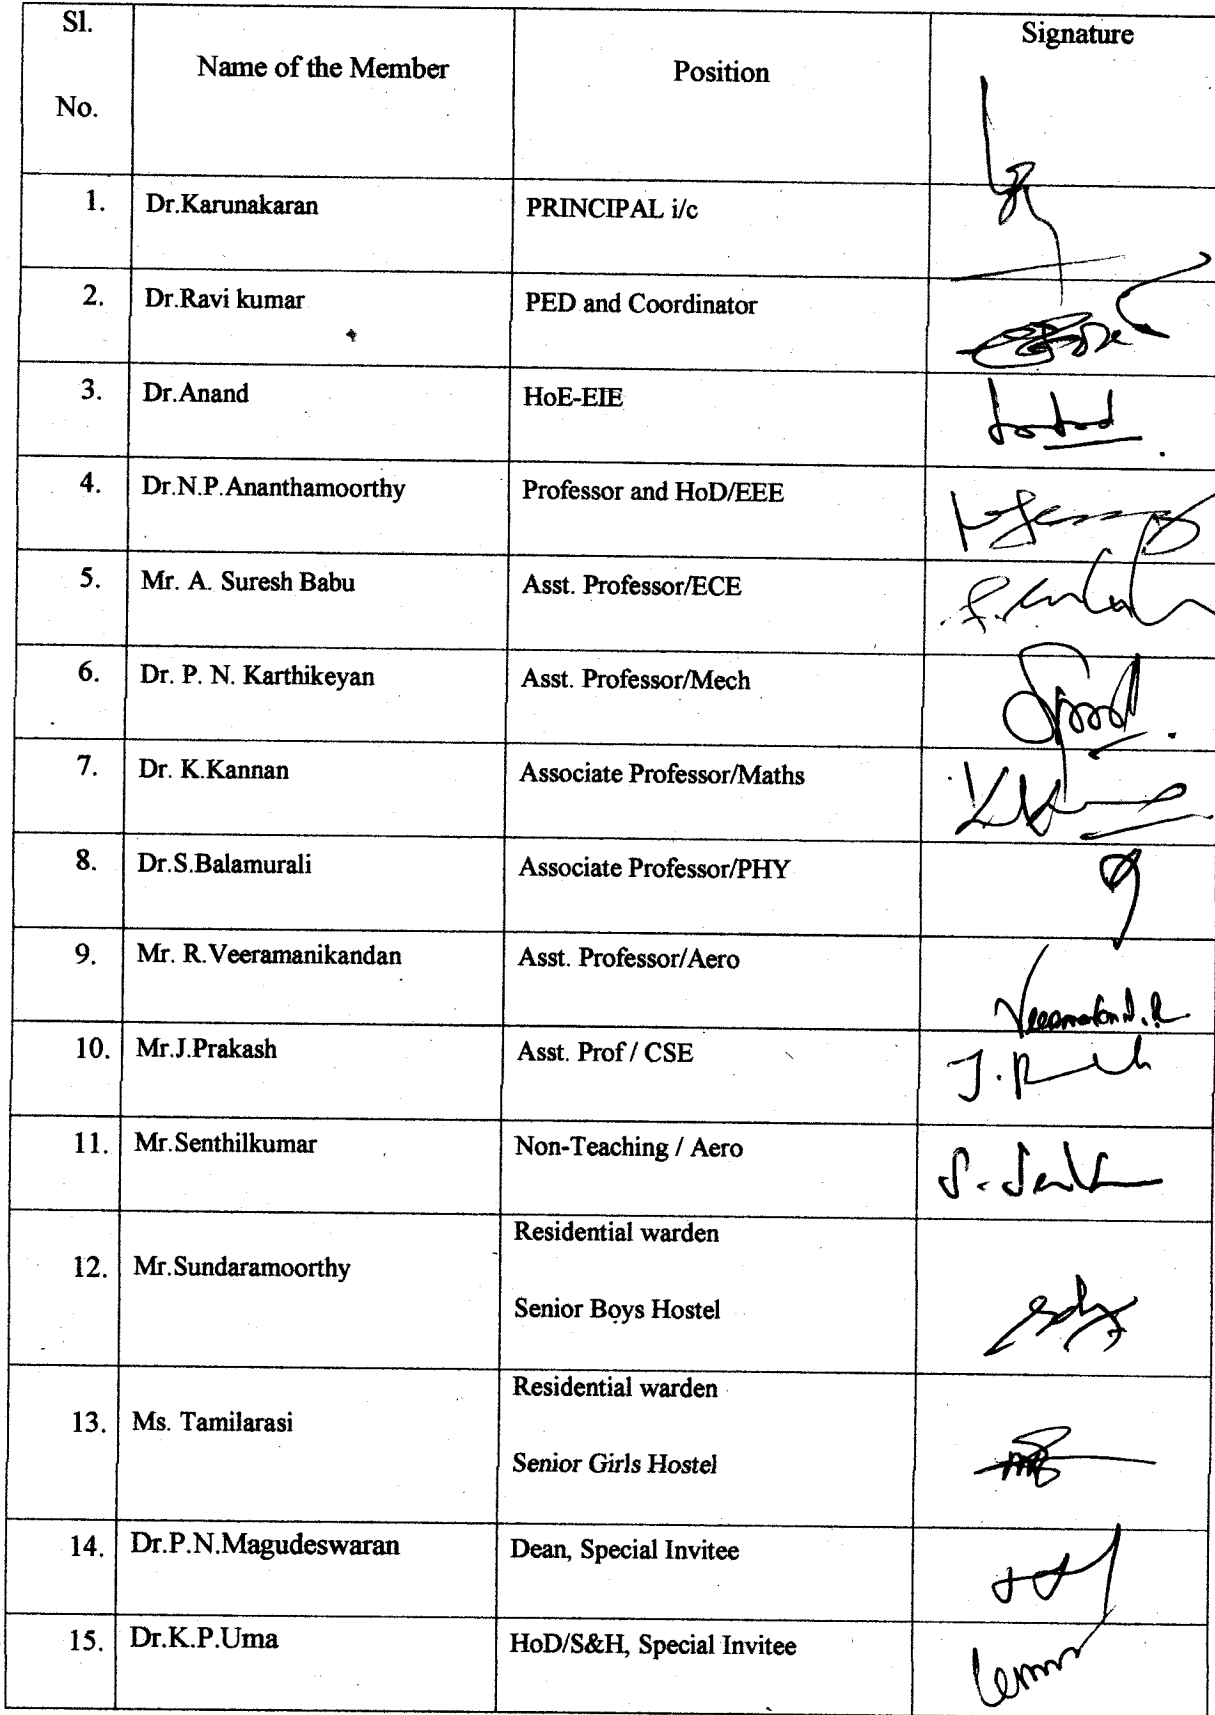 Sl.
No.
Name of the Member
Position
Signature
1. Dr.Karunakaran PRINCIPAL i/c
2. Dr.Ravi kumar PED and Coordinator
3. Dr.Anand HoE-EIE
4. Dr.N.P.Ananthamoorthy Professor and HoD/EEE
5. Mr. A. Suresh Babu Asst. Professor/ECE
6. Dr. P. N. Karthikeyan Asst. Professor/Mech
7. Dr. K.Kannan Associate Professor/Maths
8. Dr.S.Balamurali Associate Professor/PHY
9. Mr. R.Veeramanikandan Asst. Professor/Aero
10. Mr.J.Prakash Asst. Prof / CSE
11. Mr.Senthilkumar Non-Teaching / Aero
12. Mr.Sundaramoorthy Residential warden
Senior Boys Hostel
13. Ms. Tamilarasi Residential warden
Senior Girls Hostel
14. Dr.P.N.Magudeswaran Dean, Special Invitee
15. Dr.K.P.Uma HoD/S&H, Special Invitee